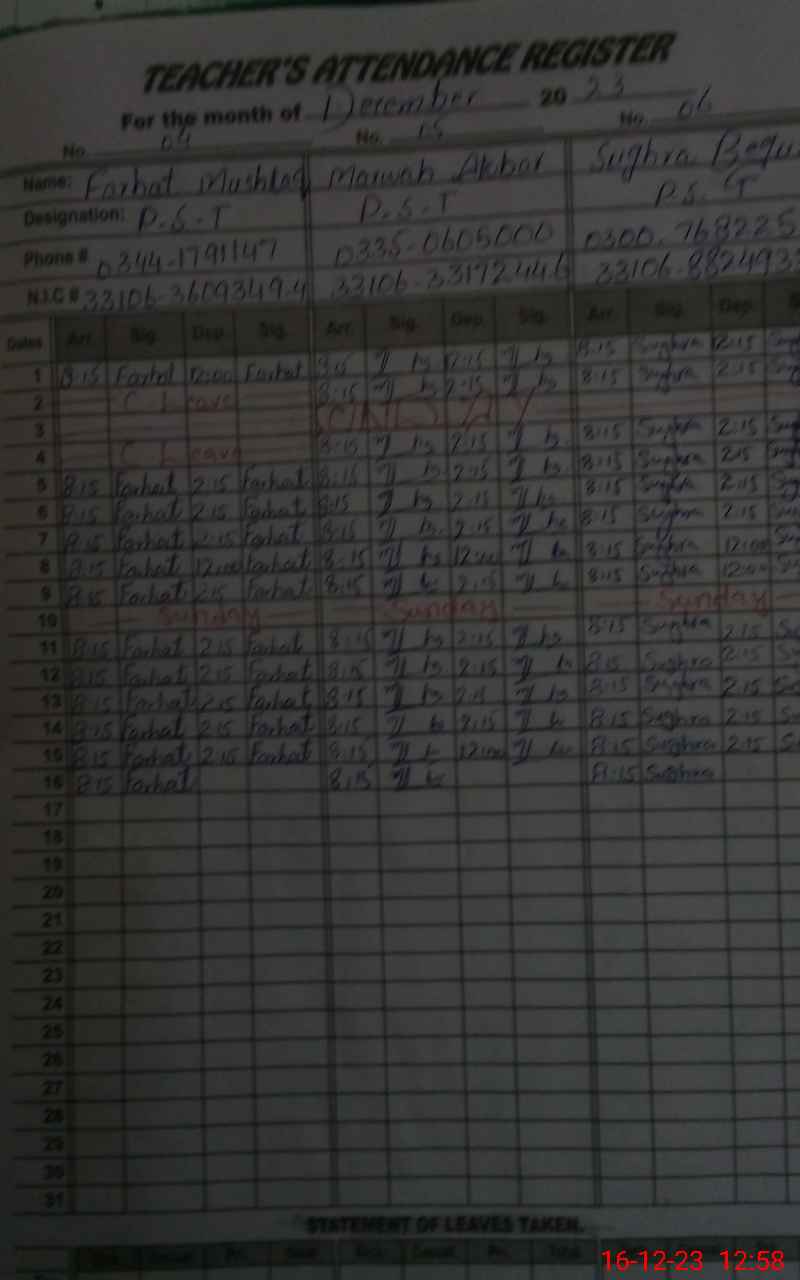 TEACHER'S ATTENDANCE REGISTER
For the month of December 20 23
No. 04 No. 15 No. 06
Name: Farhat Mushtaq Marwah Akbar Sughra Begu
Designation: P.S.T P.S.T P.S.T
Phone # 0344-1791147 0335-0605000 0300-768225
N.I.C # 33106-3609349-4 33106-33172446 33106-8824933
Dates Arr. Sig. Dep. Sig. Arr. Sig. Dep. Sig. Arr. Sig. Dep. S
1 8:15 Farhat 12:00 Farhat 8:15 12:15 8:15 Sughra 12:15
2 C Leave 8:15 2:15 8:15 Sughra 2:15
3
4 C Leave 8:15 2:15 8:15 Sughra 2:15
5 8:15 Farhat 2:15 Farhat 8:15 2:15 8:15 Sughra 2:15
6 8:15 Farhat 2:15 Farhat 8:15 2:15 8:15 Sughra 2:15
7 8:15 Farhat 2:15 Farhat 8:15 2:15 8:15 Sughra 2:15
8 8:15 Farhat 12:00 Farhat 8:15 12:00 8:15 Sughra 12:00
9 8:15 Farhat 2:15 Farhat 8:15 2:15 8:15 Sughra 12:00
10 Sunday Sunday Sunday
11 8:15 Farhat 2:15 Farhat 8:15 2:15 8:15 Sughra 2:15
12 8:15 Farhat 2:15 Farhat 8:15 2:15 8:15 Sughra 2:15
13 8:15 Farhat 2:15 Farhat 8:15 8:15 Sughra 2:15
14 8:15 Farhat 2:15 Farhat 8:15 2:15 8:15 Sughra 2:15
15 8:15 Farhat 2:15 Farhat 8:15 12:00 8:15 Sughra 2:15
16 8:15 Farhat 8:15 8:15 Sughra
17
18
19
20
21
22
23
24
25
26
27
28
29
30
31
STATEMENT OF LEAVES TAKEN.
16-12-23 12:58